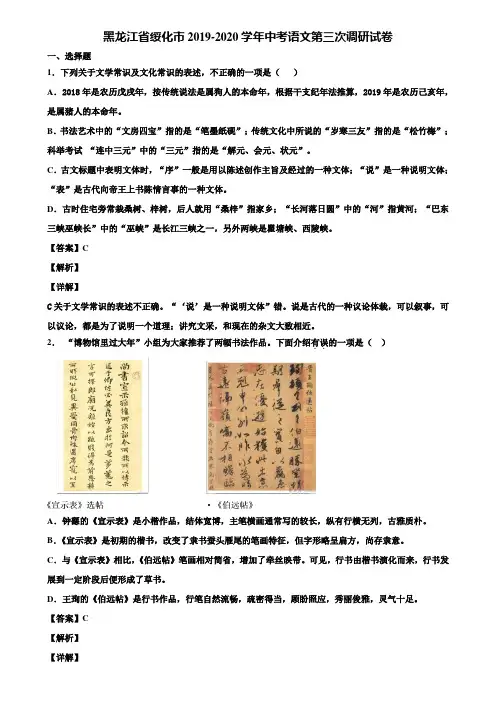 黑龙江省绥化市 2019-2020 学年中考语文第三次调研试卷
一、选择题
1．下列关于文学常识及文化常识的表述，不正确的一项是（    ）
A．2018年是农历戊戌年，按传统说法是属狗人的本命年，根据干支纪年法推算，2019年是农历己亥年，
是属猪人的本命年。
B．书法艺术中的“文房四宝”指的是“笔墨纸砚”；传统文化中所说的“岁寒三友”指的是“松竹梅”；
科举考试 “连中三元”中的“三元”指的是“解元、会元、状元”。
C．古文标题中表明文体时，“序”一般是用以陈述创作主旨及经过的一种文体；“说”是一种说明文体；
“表”是古代向帝王上书陈情言事的一种文体。
D．古时住宅旁常栽桑树、梓树，后人就用“桑梓”指家乡；“长河落日圆”中的“河”指黄河；“巴东
三峡巫峡长”中的“巫峡”是长江三峡之一，另外两峡是瞿塘峡、西陵峡。
【答案】C
【解析】
【详解】
C关于文学常识的表述不正确。“‘说’是一种说明文体”错。说是古代的一种议论体裁，可以叙事，可
以议论，都是为了说明一个道理；讲究文采，和现在的杂文大致相近。
2． “博物馆里过大年”小组为大家推荐了两幅书法作品。下面介绍有误的一项是（    ）
《宣示表》选帖 ·《伯远帖》
A．钟繇的《宣示表》是小楷作品，结体宽博，主笔横画通常写的较长，纵有行横无列，古雅质朴。
B．《宣示表》是初期的楷书，改变了隶书蚕头雁尾的笔画特征，但字形略呈扁方，尚存隶意。
C．与《宣示表》相比，《伯远帖》笔画相对简省，增加了牵丝映带。可见，行书由楷书演化而来，行书发
展到一定阶段后便形成了草书。
D．王珣的《伯远帖》是行书作品，行笔自然流畅，疏密得当，顾盼照应，秀丽俊雅，灵气十足。
【答案】C
【解析】
【详解】